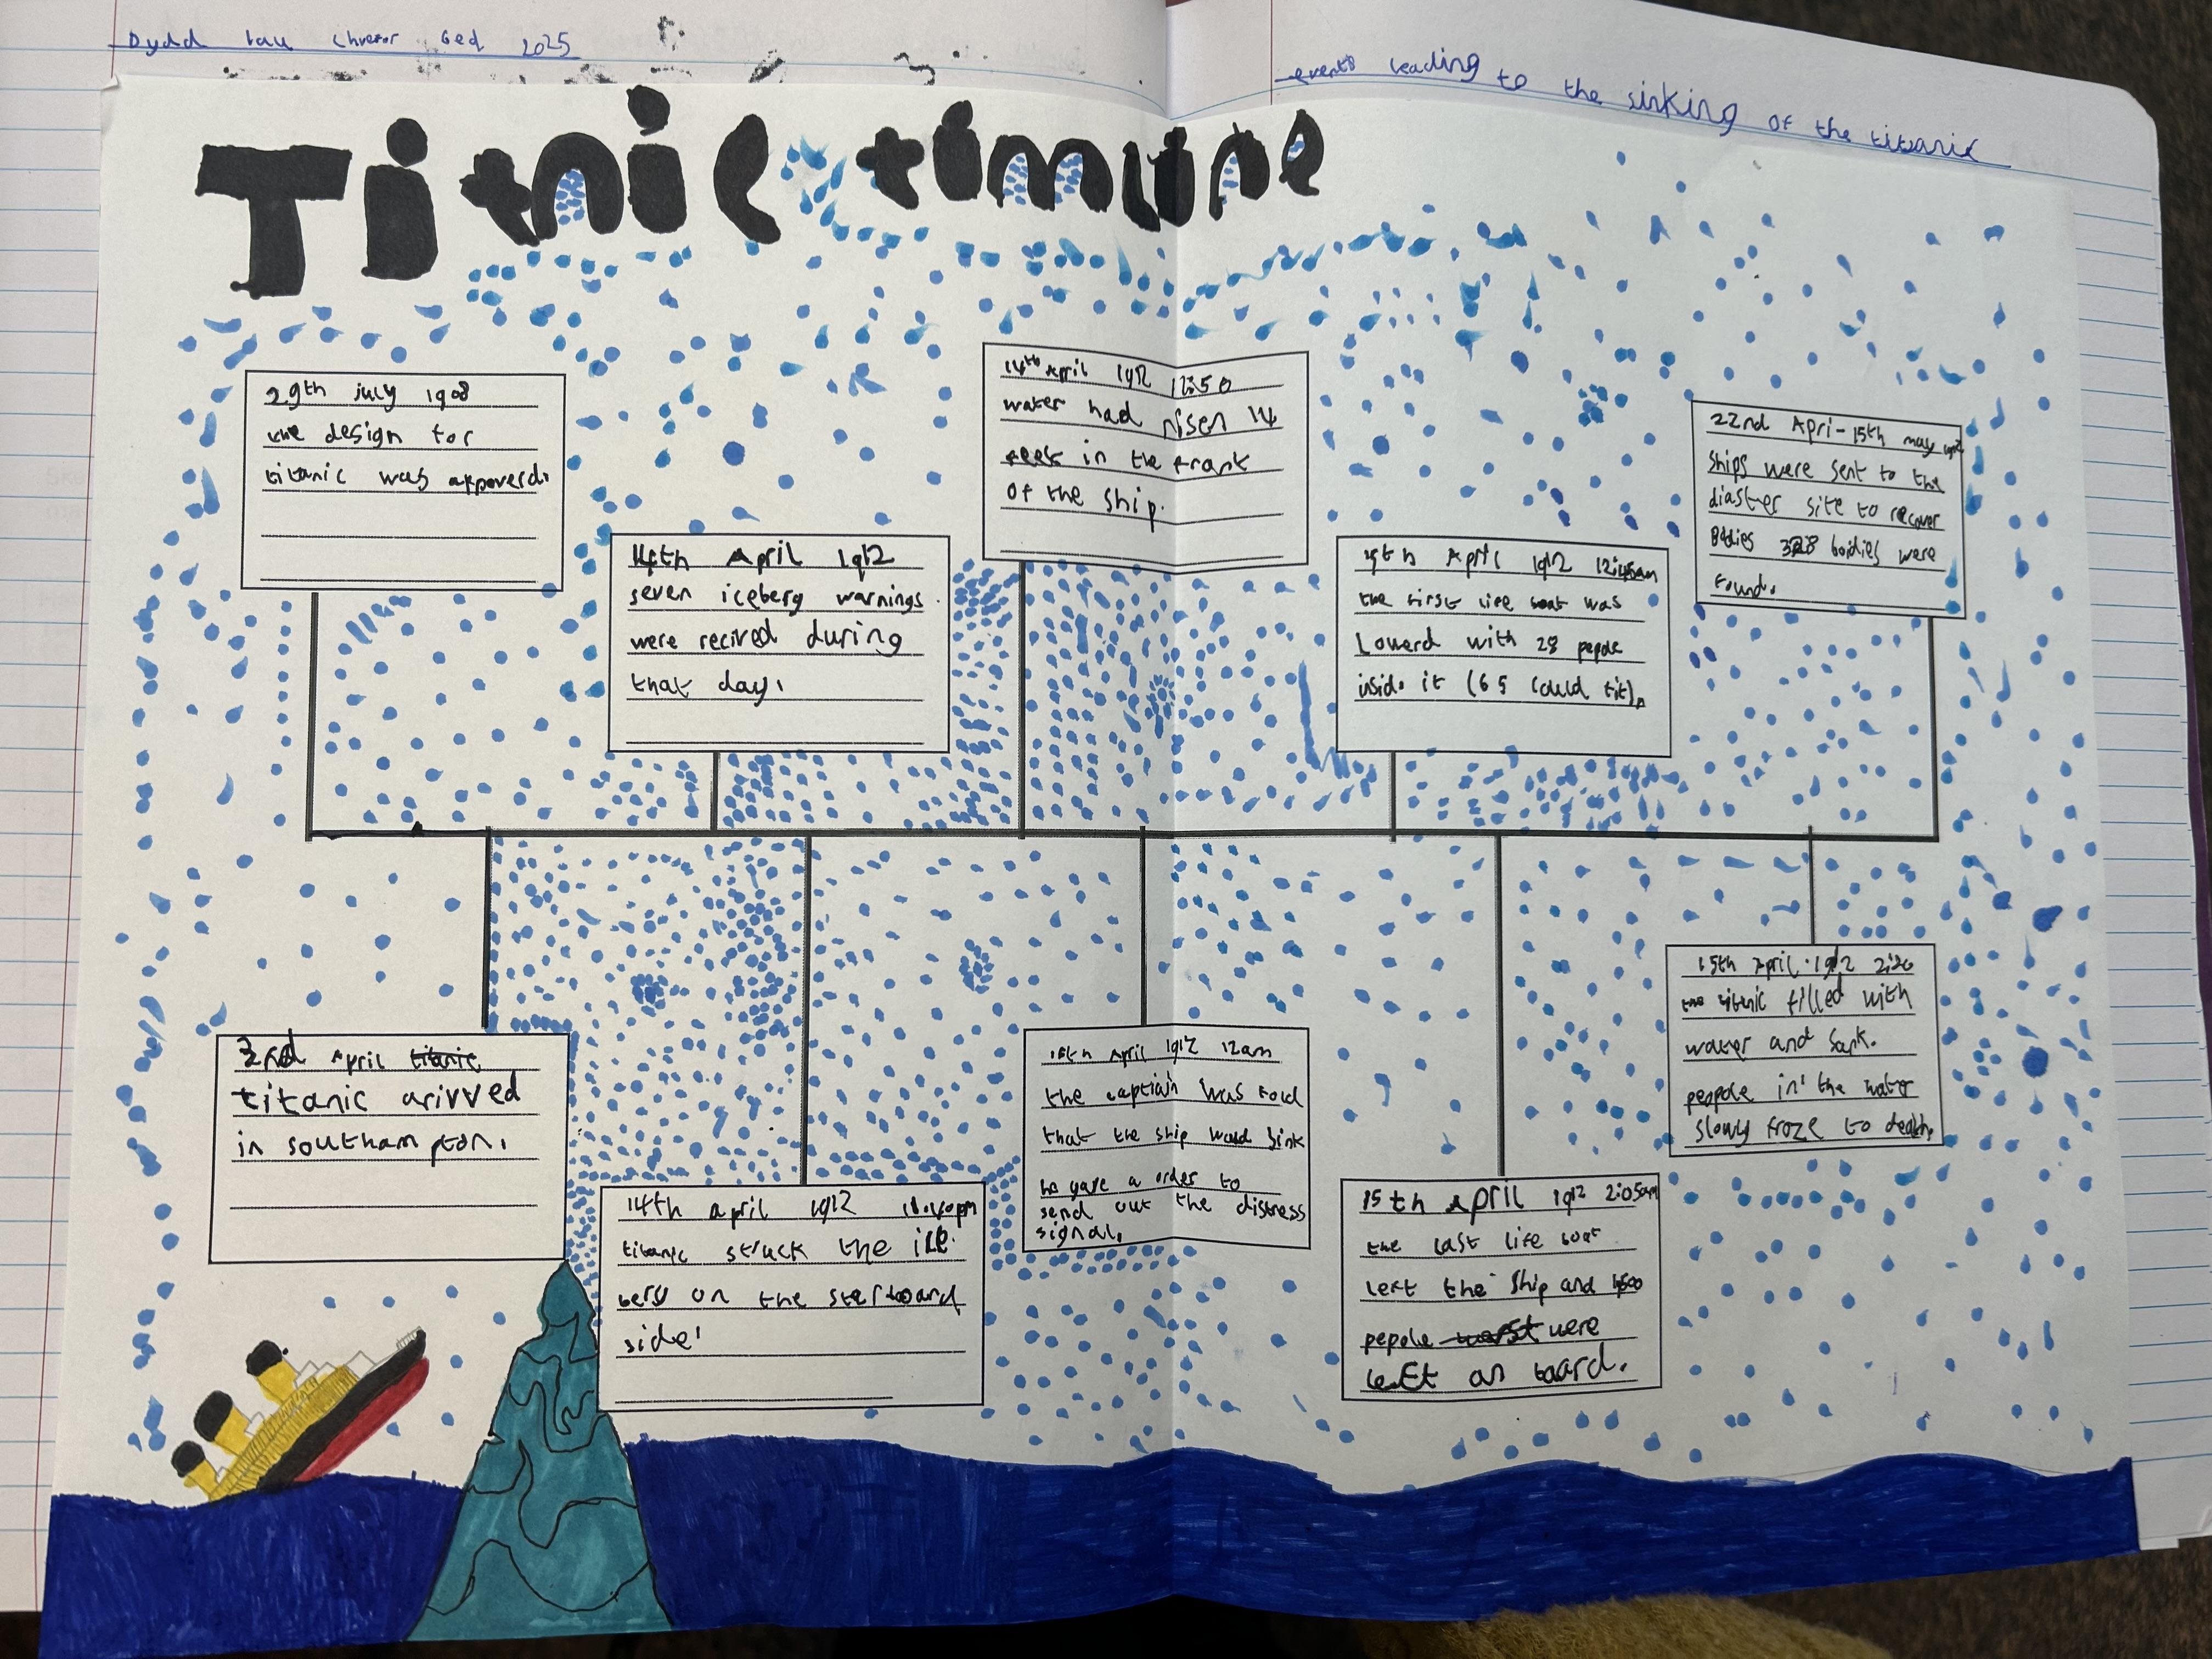 Dydd Iau Chwefror 6ed 2025
events leading to the sinking of the titanic
Titnic timline
29th july 1908
the design for
titanic was appoverd.
14th April 1912
seven iceberg warnings
were recived during
that day.
14th April 1912 11:50
water had risen 14
feek in the frank
of the ship.
15th April 1912 12:45am
the first life boat was
Lowerd with 28 pepole
inside it (65 could fit).
22nd Apri-15th may 1912
Ships were sent to the
diaster site to recover
Bodies 328 boidies were
found.
2nd April titanic
titanic arivved
in southampton.
14th april 1912 11.40pm
titanic struck the ice
berg on the starboard
side.
15th April 1912 12am
the captian was told
that the ship would sink
he gave a order to
send out the distress
signal.
15th April 1912 2:05am
the last life boat
left the ship and 1,500
pepole were
left on board.
15th April 1912 2:20
the titanic filled with
water and sank.
pepole in the water
slowly froze to death.